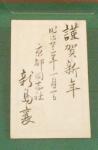 謹賀新年
明治廿二年一月一日
京都同志社
新島襄